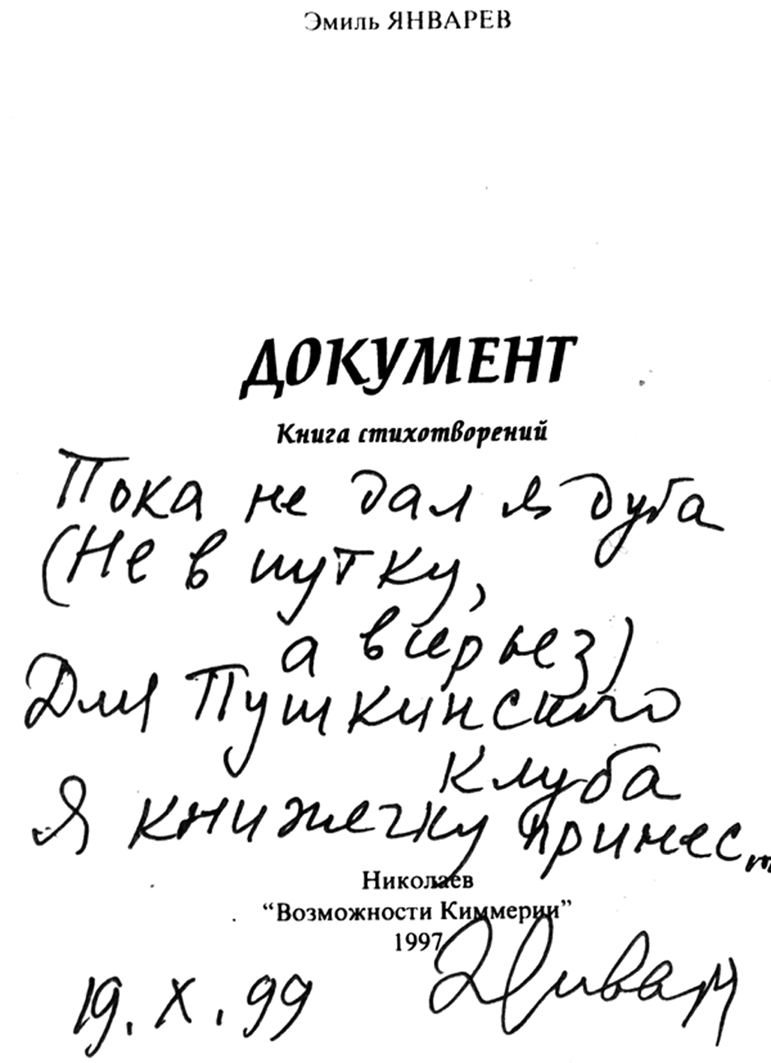 Эмиль ЯНВАРЕВ
ДОКУМЕНТ
Книга стихотворений
Пока не дал я дуба
(Не в шутку,
а всерьез)
Для Пушкинского
клуба
Я книжечку принес...
Николаев
“Возможности Киммерии”
1997
19.X.99